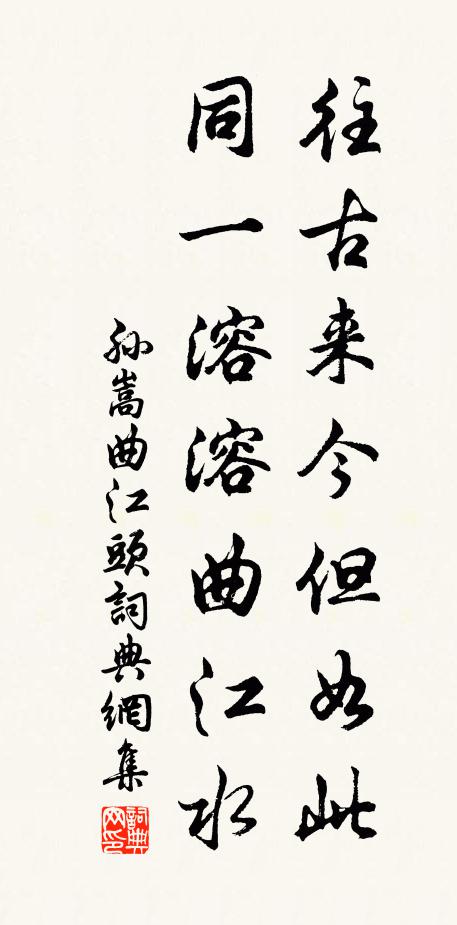 往古来今但如此
同一溶溶曲江水
孙嵩曲江頭詞典網集
詞典网印